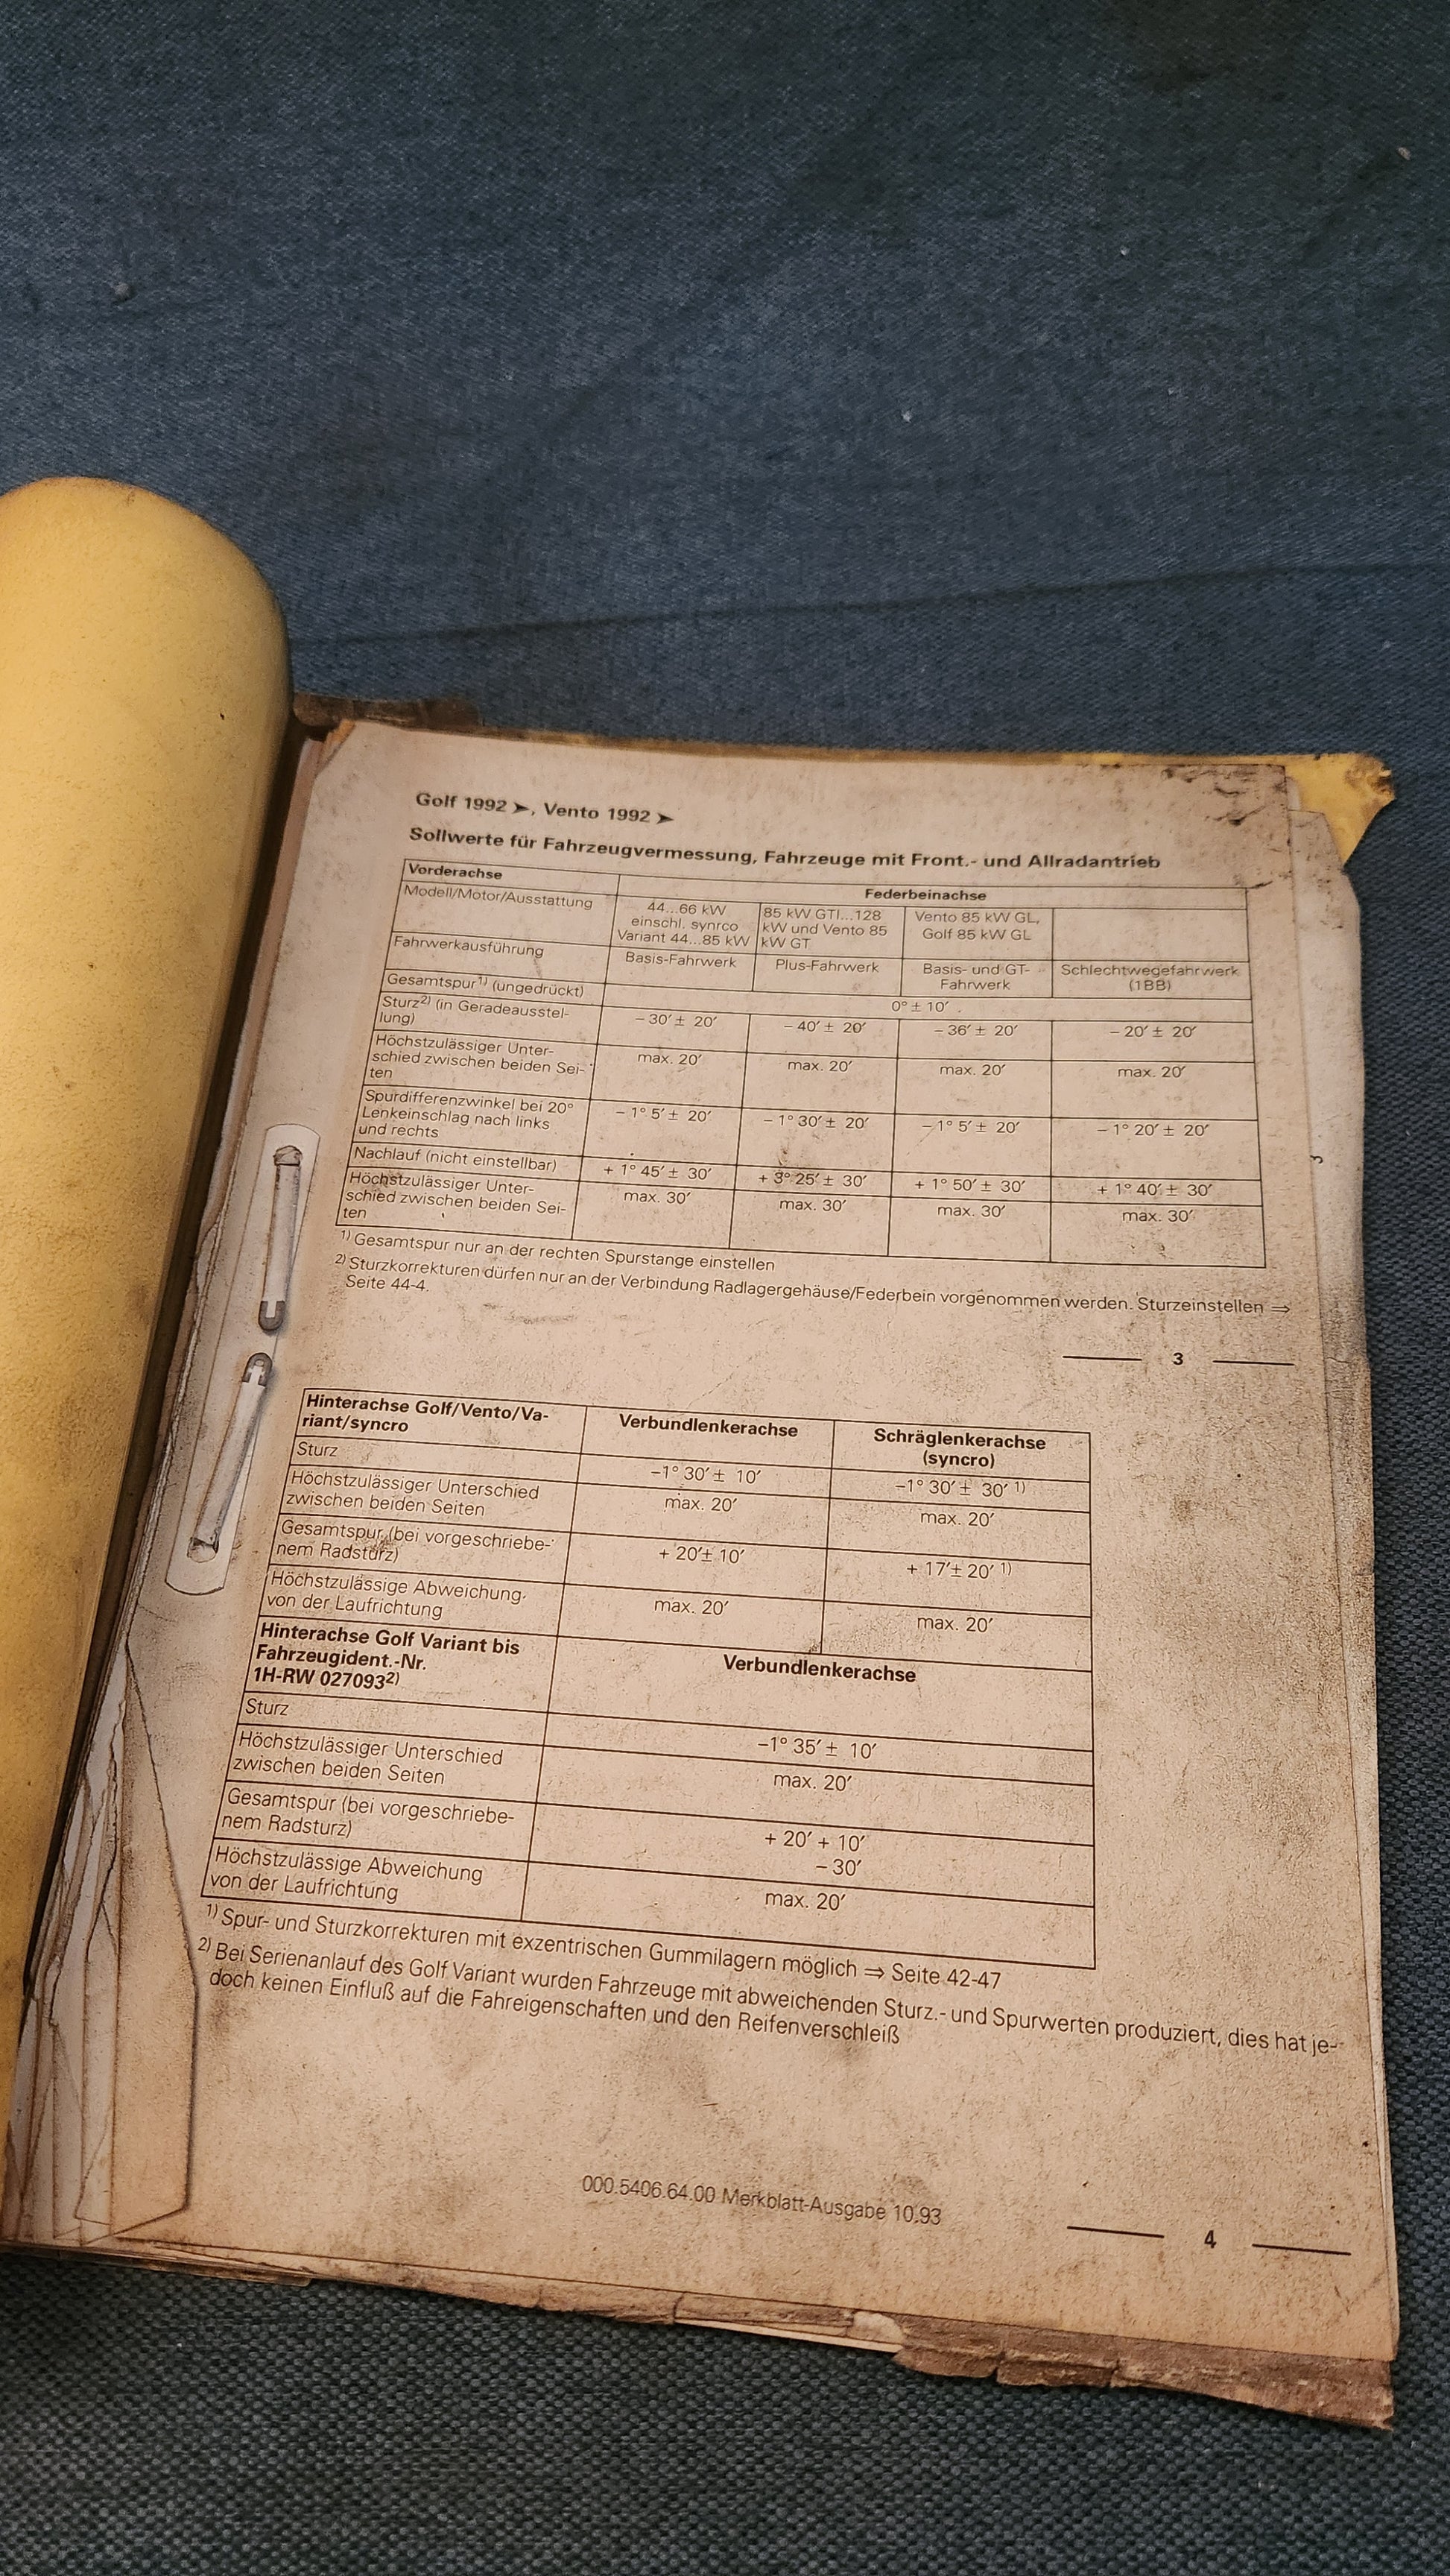 Golf 1992 ➤, Vento 1992 ➤
Sollwerte für Fahrzeugvermessung, Fahrzeuge mit Front.- und Allradantrieb
Vorderachse
Federbeinachse
Modell/Motor/Ausstattung
44...66 kW
einschl. synrco
Variant 44...85 kW
85 kW GTI...128
kW und Vento 85
kW GT
Vento 85 kW GL,
Golf 85 kW GL
Fahrwerkausführung
Basis-Fahrwerk
Plus-Fahrwerk
Basis- und GT-
Fahrwerk
Schlechtwegefahrwerk
(1BB)
Gesamtspur1) (ungedrückt)
0° ± 10′
Sturz2) (in Geradeausstel-
lung)
– 30′ ± 20′
– 40′ ± 20′
– 36′ ± 20′
– 20′ ± 20′
Höchstzulässiger Unter-
schied zwischen beiden Sei-
ten
max. 20′
max. 20′
max. 20′
max. 20′
Spurdifferenzwinkel bei 20°
Lenkeinschlag nach links
und rechts
– 1° 5′ ± 20′
– 1° 30′ ± 20′
– 1° 5′ ± 20′
– 1° 20′ ± 20′
Nachlauf (nicht einstellbar)
+ 1° 45′ ± 30′
+ 3° 25′ ± 30′
+ 1° 50′ ± 30′
+ 1° 40′ ± 30′
Höchstzulässiger Unter-
schied zwischen beiden Sei-
ten
max. 30′
max. 30′
max. 30′
max. 30′
1) Gesamtspur nur an der rechten Spurstange einstellen
2) Sturzkorrekturen dürfen nur an der Verbindung Radlagergehäuse/Federbein vorgenommen werden. Sturzeinstellen ⇒
Seite 44-4.
3
3
Hinterachse Golf/Vento/Va-
riant/syncro
Verbundlenkerachse
Schräglenkerachse
(syncro)
Sturz
–1° 30′ ± 10′
–1° 30′ ± 30′ 1)
Höchstzulässiger Unterschied
zwischen beiden Seiten
max. 20′
max. 20′
Gesamtspur (bei vorgeschriebe-
nem Radsturz)
+ 20′ ± 10′
+ 17′ ± 20′ 1)
Höchstzulässige Abweichung
von der Laufrichtung
max. 20′
max. 20′
Hinterachse Golf Variant bis
Fahrzeugident.-Nr.
1H-RW 0270932)
Verbundlenkerachse
Sturz
–1° 35′ ± 10′
Höchstzulässiger Unterschied
zwischen beiden Seiten
max. 20′
Gesamtspur (bei vorgeschriebe-
nem Radsturz)
+ 20′ + 10′
– 30′
Höchstzulässige Abweichung
von der Laufrichtung
max. 20′
1) Spur- und Sturzkorrekturen mit exzentrischen Gummilagern möglich ⇒ Seite 42-47
2) Bei Serienanlauf des Golf Variant wurden Fahrzeuge mit abweichenden Sturz.- und Spurwerten produziert, dies hat je-
doch keinen Einfluß auf die Fahreigenschaften und den Reifenverschleiß
000.5406.64.00 Merkblatt-Ausgabe 10.93
4